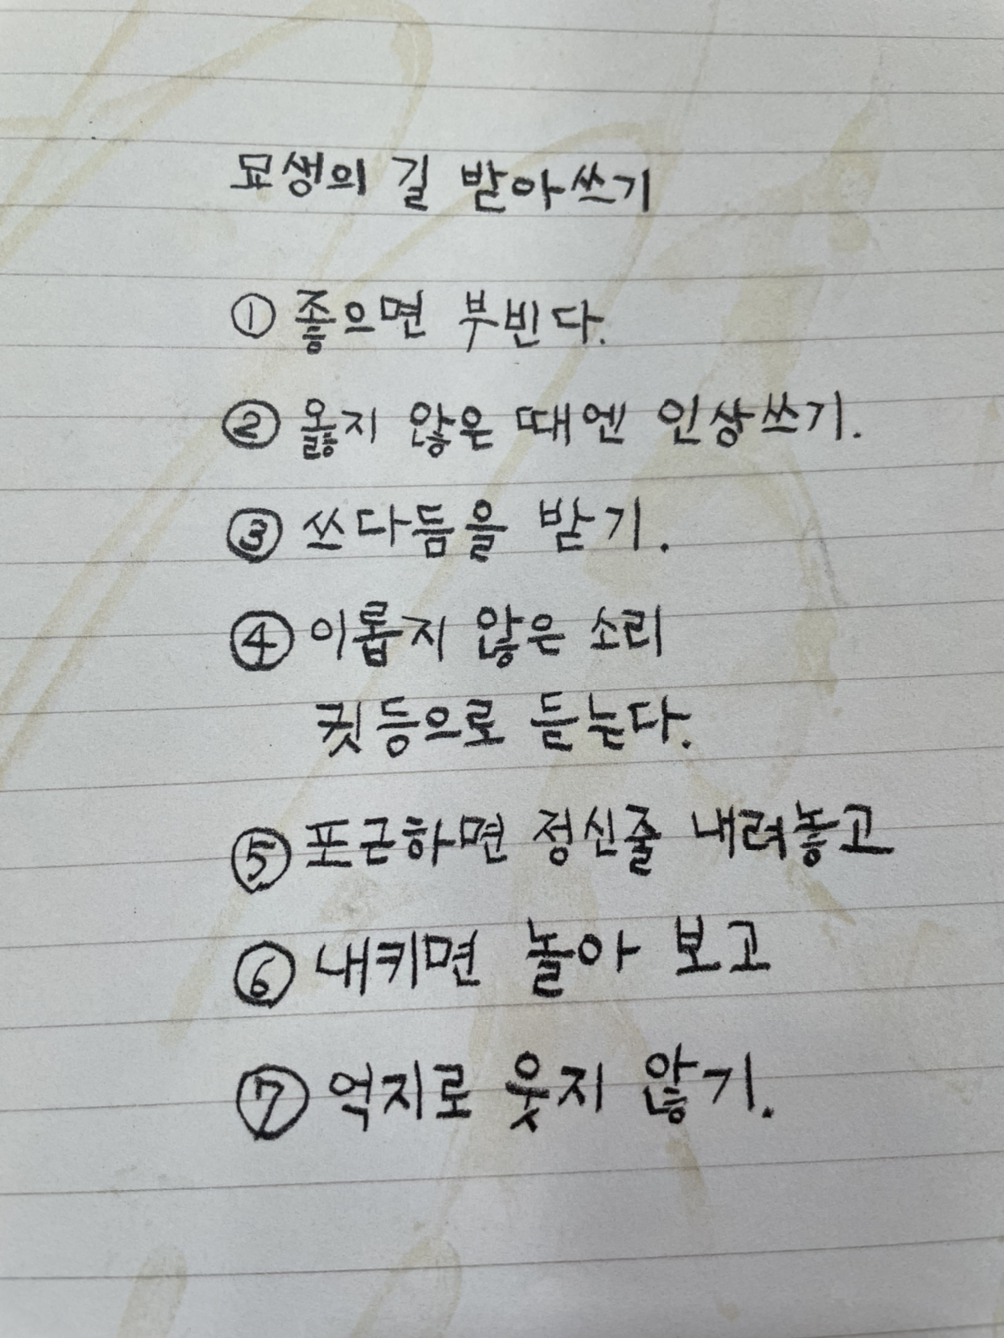 묘생의 길 받아쓰기
① 좋으면 부빈다.
② 옳지 않은 때엔 인상쓰기.
③ 쓰다듬을 받기.
④ 이롭지 않은 소리
귓등으로 듣는다.
⑤ 포근하면 정신줄 내려놓고
⑥ 내키면 놀아 보고
⑦ 억지로 웃지 않기.